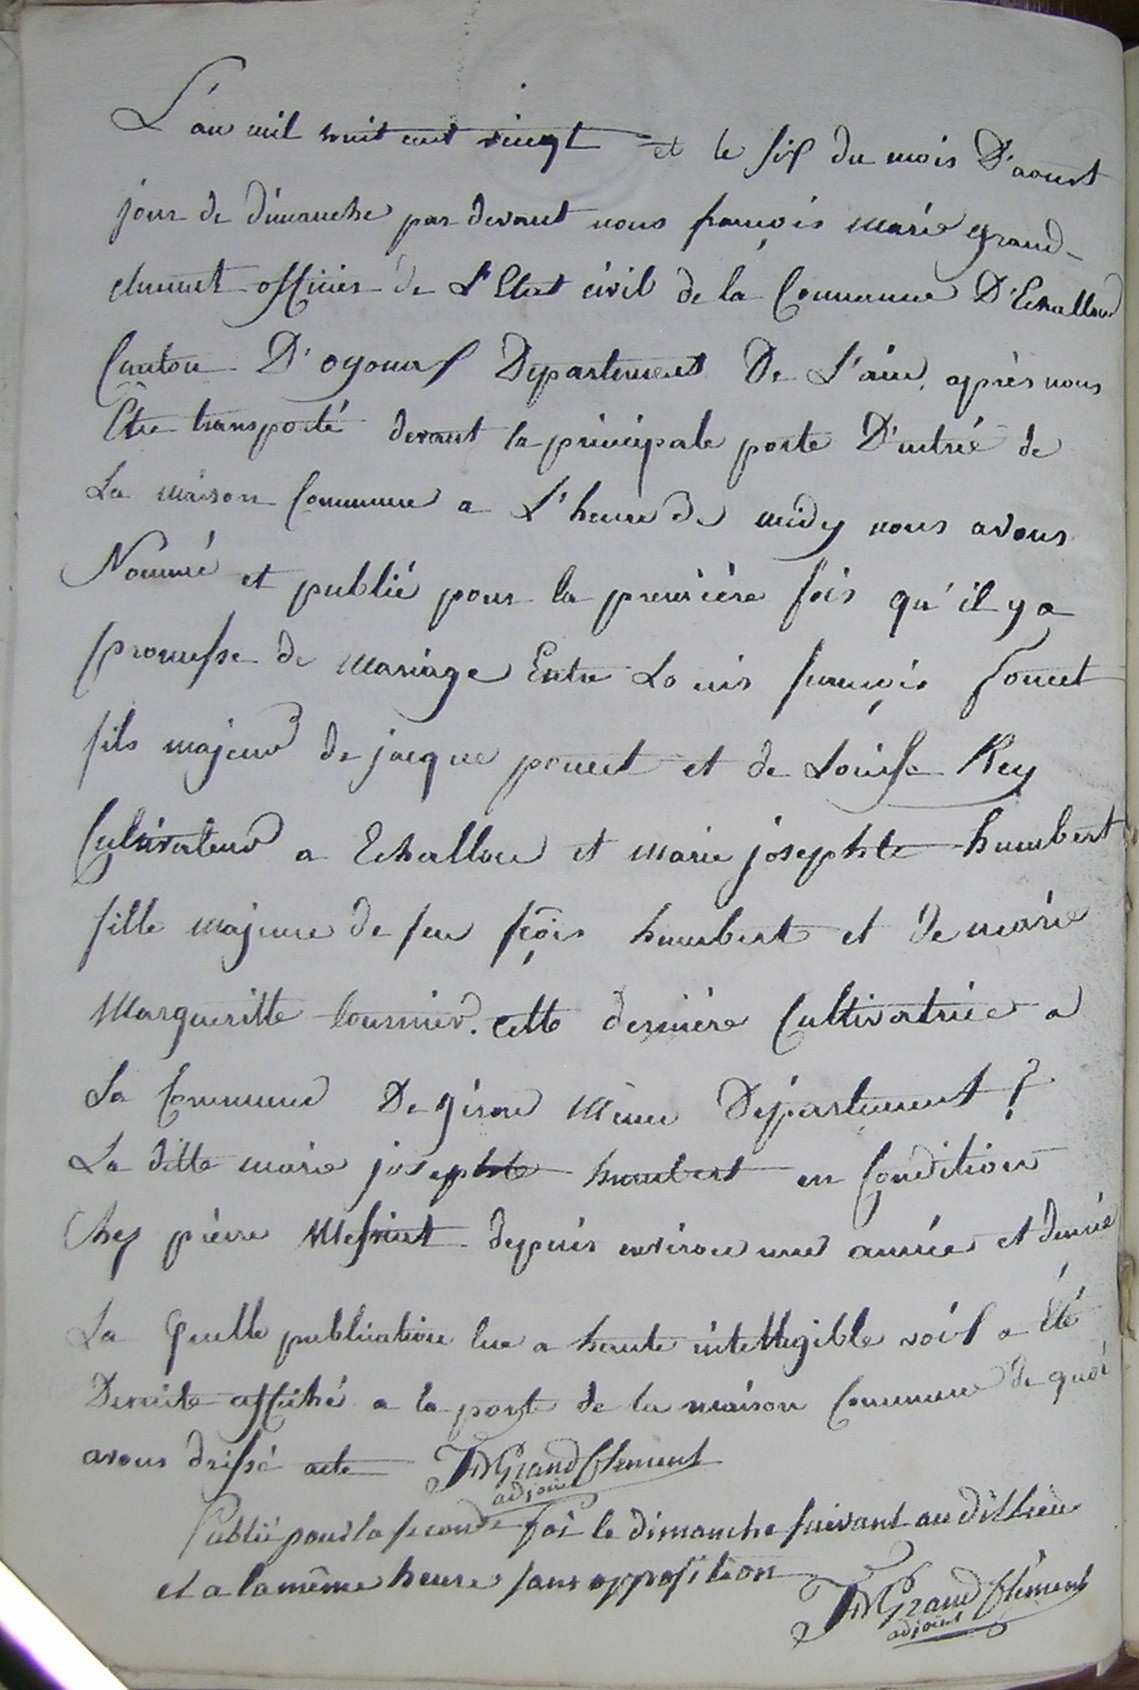 L'an mil huit cent vingt et le six du mois D'aoust
jour de dimanche par devant nous françois marie grand-
clement officier de L'Etat civil de la Commune D'Echallon
Canton D'oyonax Departement De L'ain, après nous
Etre transporté devant la principale porte D'entrée de
La maison Commune a L'heure de midy nous avons
Nommé et publié pour la première fois qu'il y a
promesse de mariage Entre Louis françois poncet
fils majeur de jacque poncet et de Louise Rey
Cultivateur a Echallon et marie josephte humbert
fille majeure de feu fçois humbert et de marie
Margueritte tournier. cette dernière Cultivatrice a
La Commune De giron Même Département ?
La ditte marie josephte humbert en Condition
Chez pierre Mesniet depuis environ une année et demie
La quelle publication lue a haute intelligible voix a été
De suite affiché a la porte de la maison Commune de quoi
avons dressé acte FMGrandClement
adjoint
Publié pour la seconde foi le dimanche suivant au dit lieu
et a la même heure sans opposition
FMGrandClément
adjoint